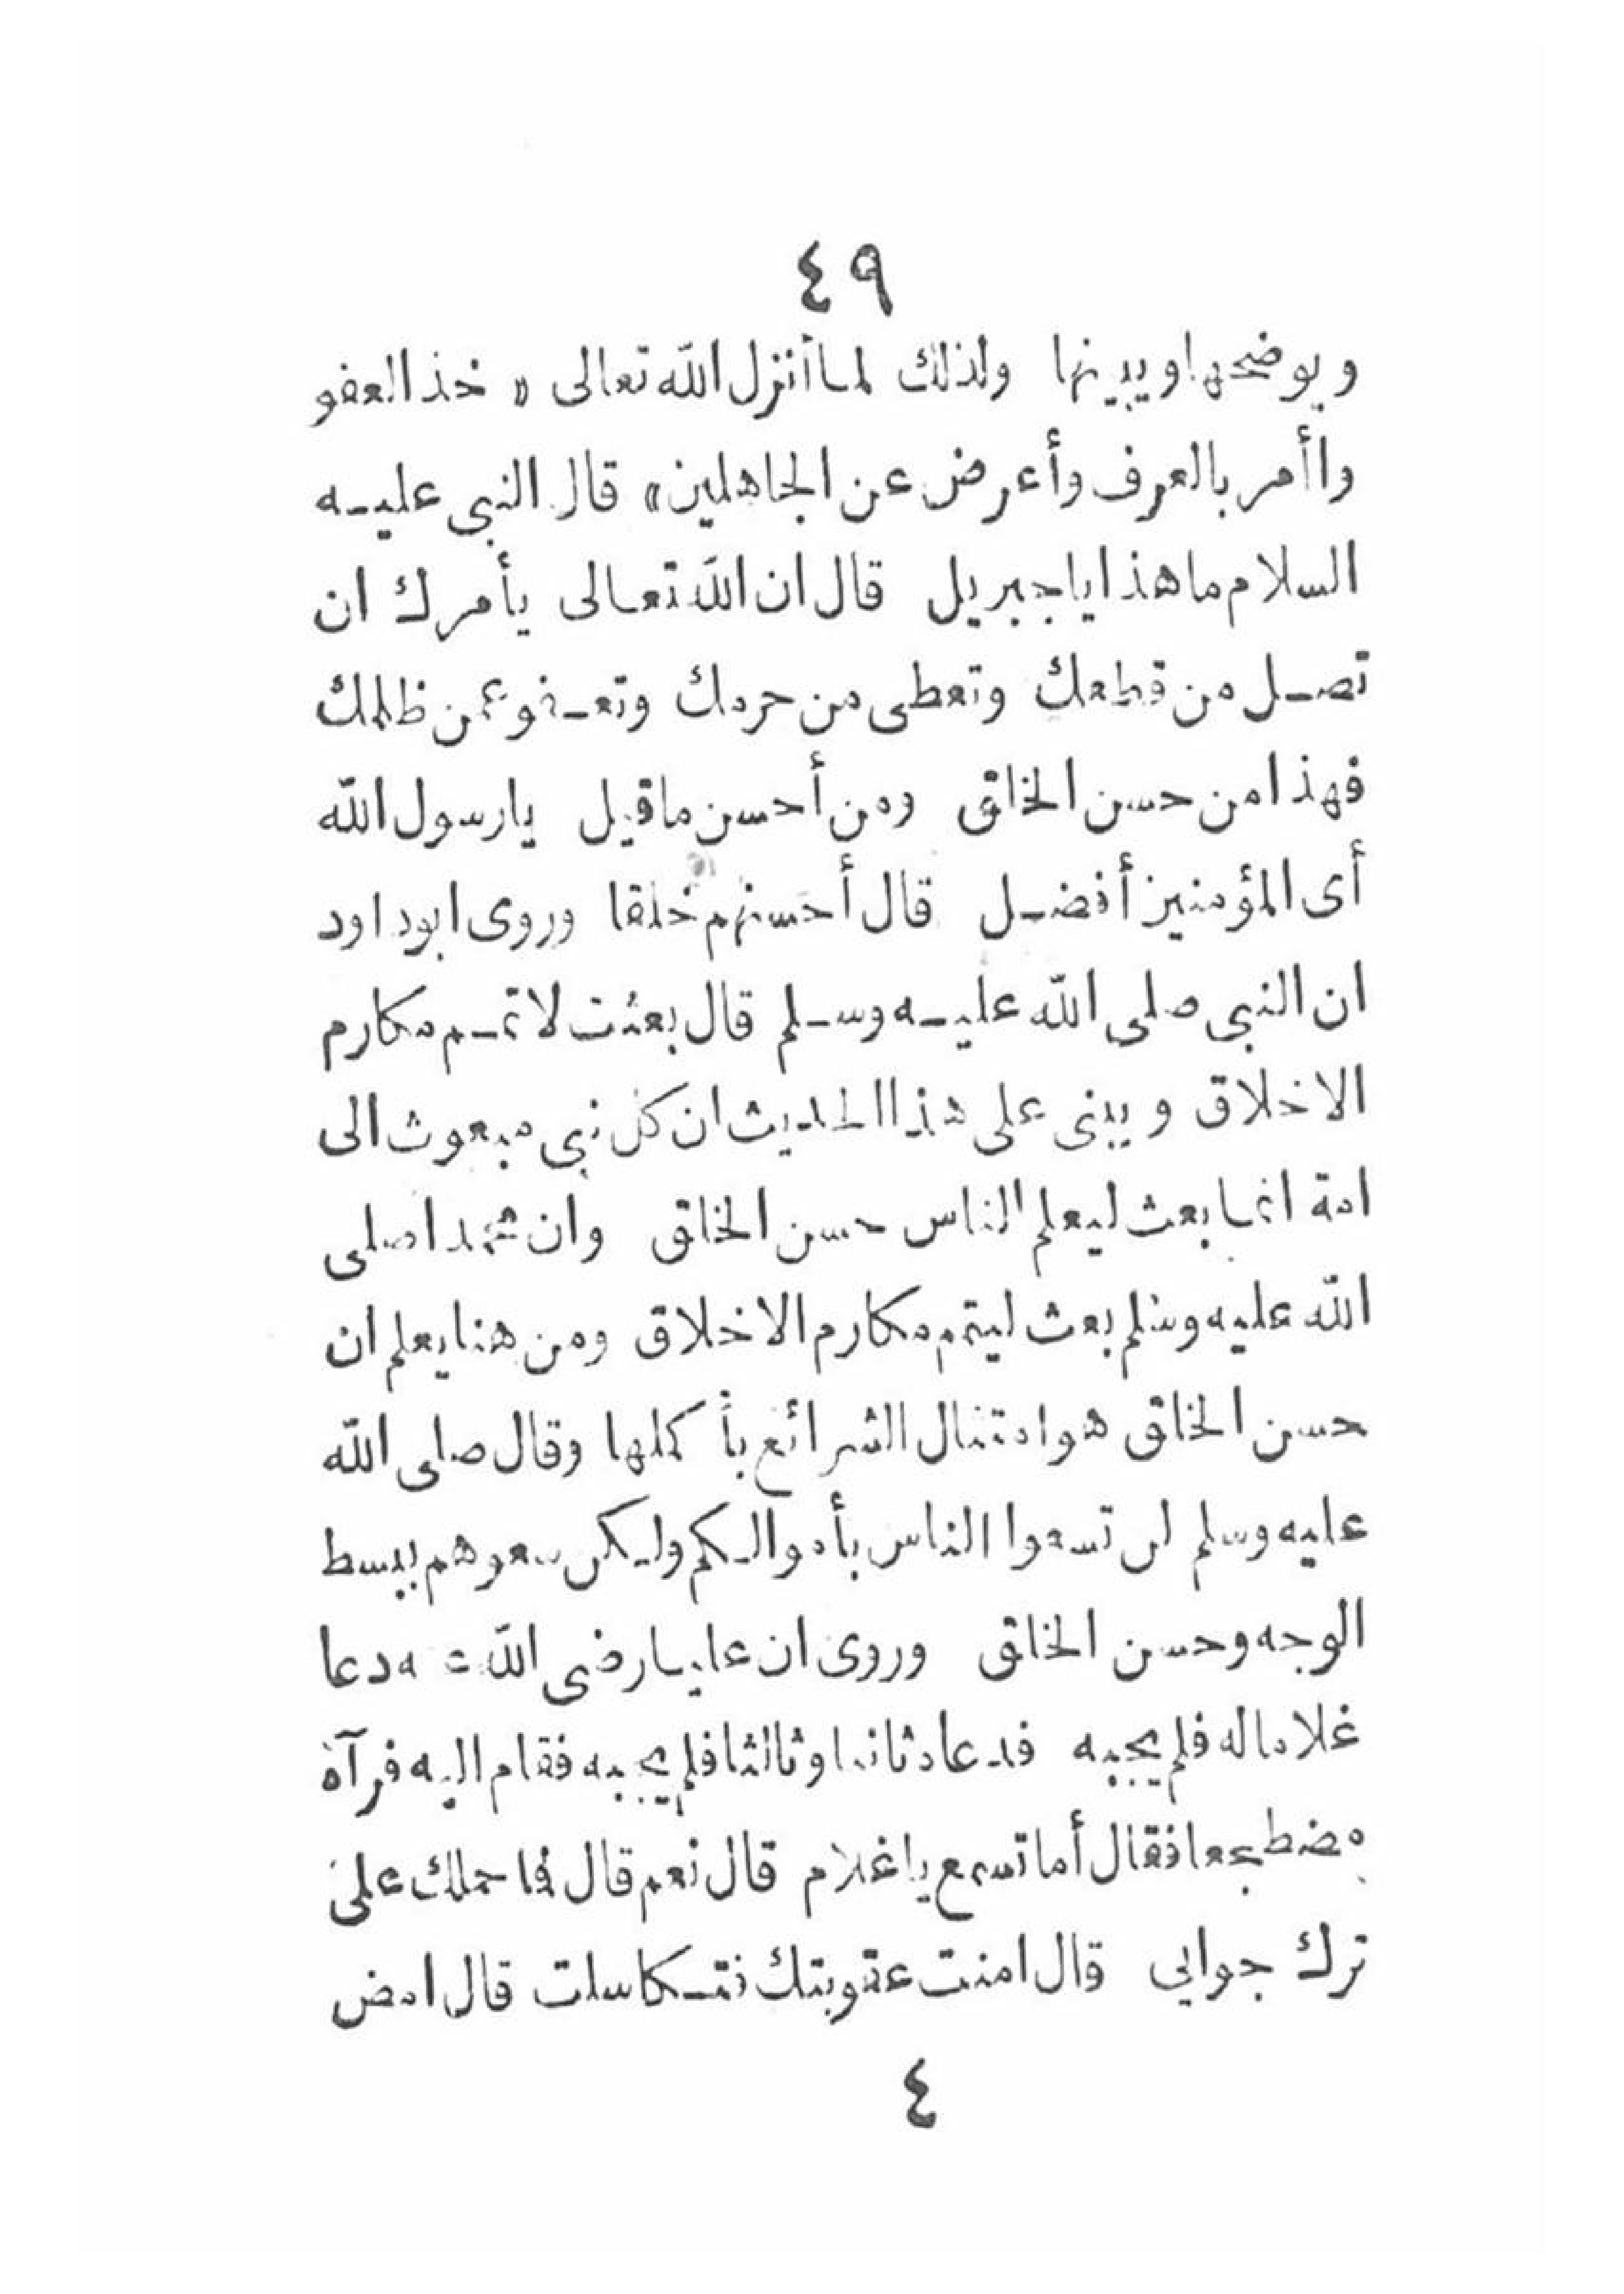 ٤٩
ويوضحها ويبينها ولذلك لما أنزل الله تعالى « خذ العفو
واأمر بالعرف وأعرض عن الجاهلين » قال النبى عليه
السلام ما هذا يا جبريل قال ان الله تعالى يأمرك ان
تصل من قطعك وتعطى من حرمك وتعفو عمن ظلمك
فهذا من حسن الخلق ومن أحسن ما قيل يا رسول الله
أى المؤمنين أفضل قال أحسنهم خلقا وروى ابو داود
ان النبى صلى الله عليه وسلم قال بعثت لاتمم مكارم
الاخلاق ويبنى على هذا الحديث ان كل نبى مبعوث الى
امة انما بعث ليعلم الناس حسن الخلق وان محمدا صلى
الله عليه وسلم بعث ليتمم مكارم الاخلاق ومن هنا يعلم ان
حسن الخلق هو امتثال الشرائع بأكملها وقال صلى الله
عليه وسلم لن تسعوا الناس بأموالكم ولكن سعوهم ببسط
الوجه وحسن الخلق وروى ان عليا رضى الله عنه دعا
غلاما له فلم يجبه فدعاه ثانيا وثالثا فلم يجبه فقام اليه فرآه
مضطجعا فقال أما تسمع يا غلام قال نعم قال فما حملك على
ترك جوابى قال امنت عقوبتك فتكاسلت قال امض
٤